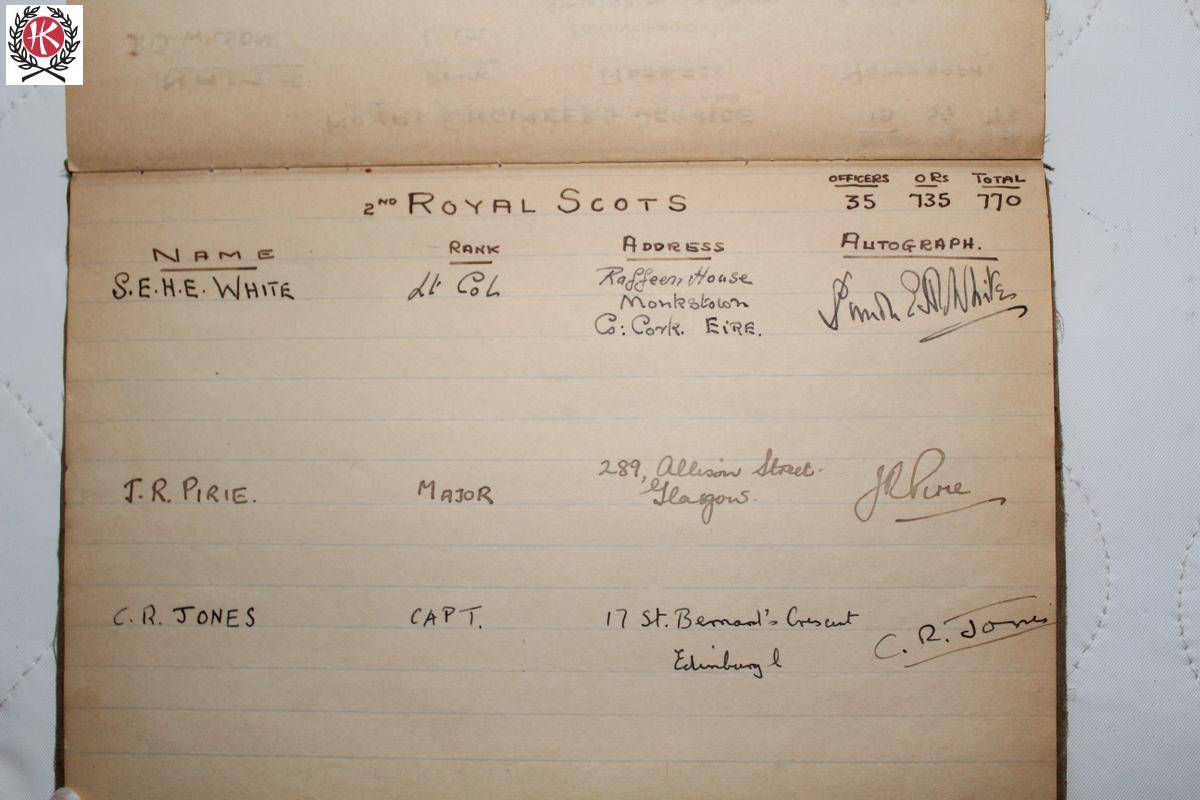 HK
2ND ROYAL SCOTS
OFFICERS ORs TOTAL
35 735 770
NAME RANK ADDRESS AUTOGRAPH.
S.E.H.E. WHITE Lt Col Raffeen House
Monkstown
Co: Cork. EIRE.
J.R. PIRIE. MAJOR 289, Allison Street. JR Pirie
Glasgow.
C.R. JONES CAPT. 17 St. Bernard's Crescent C. R. Jones
Edinburgh